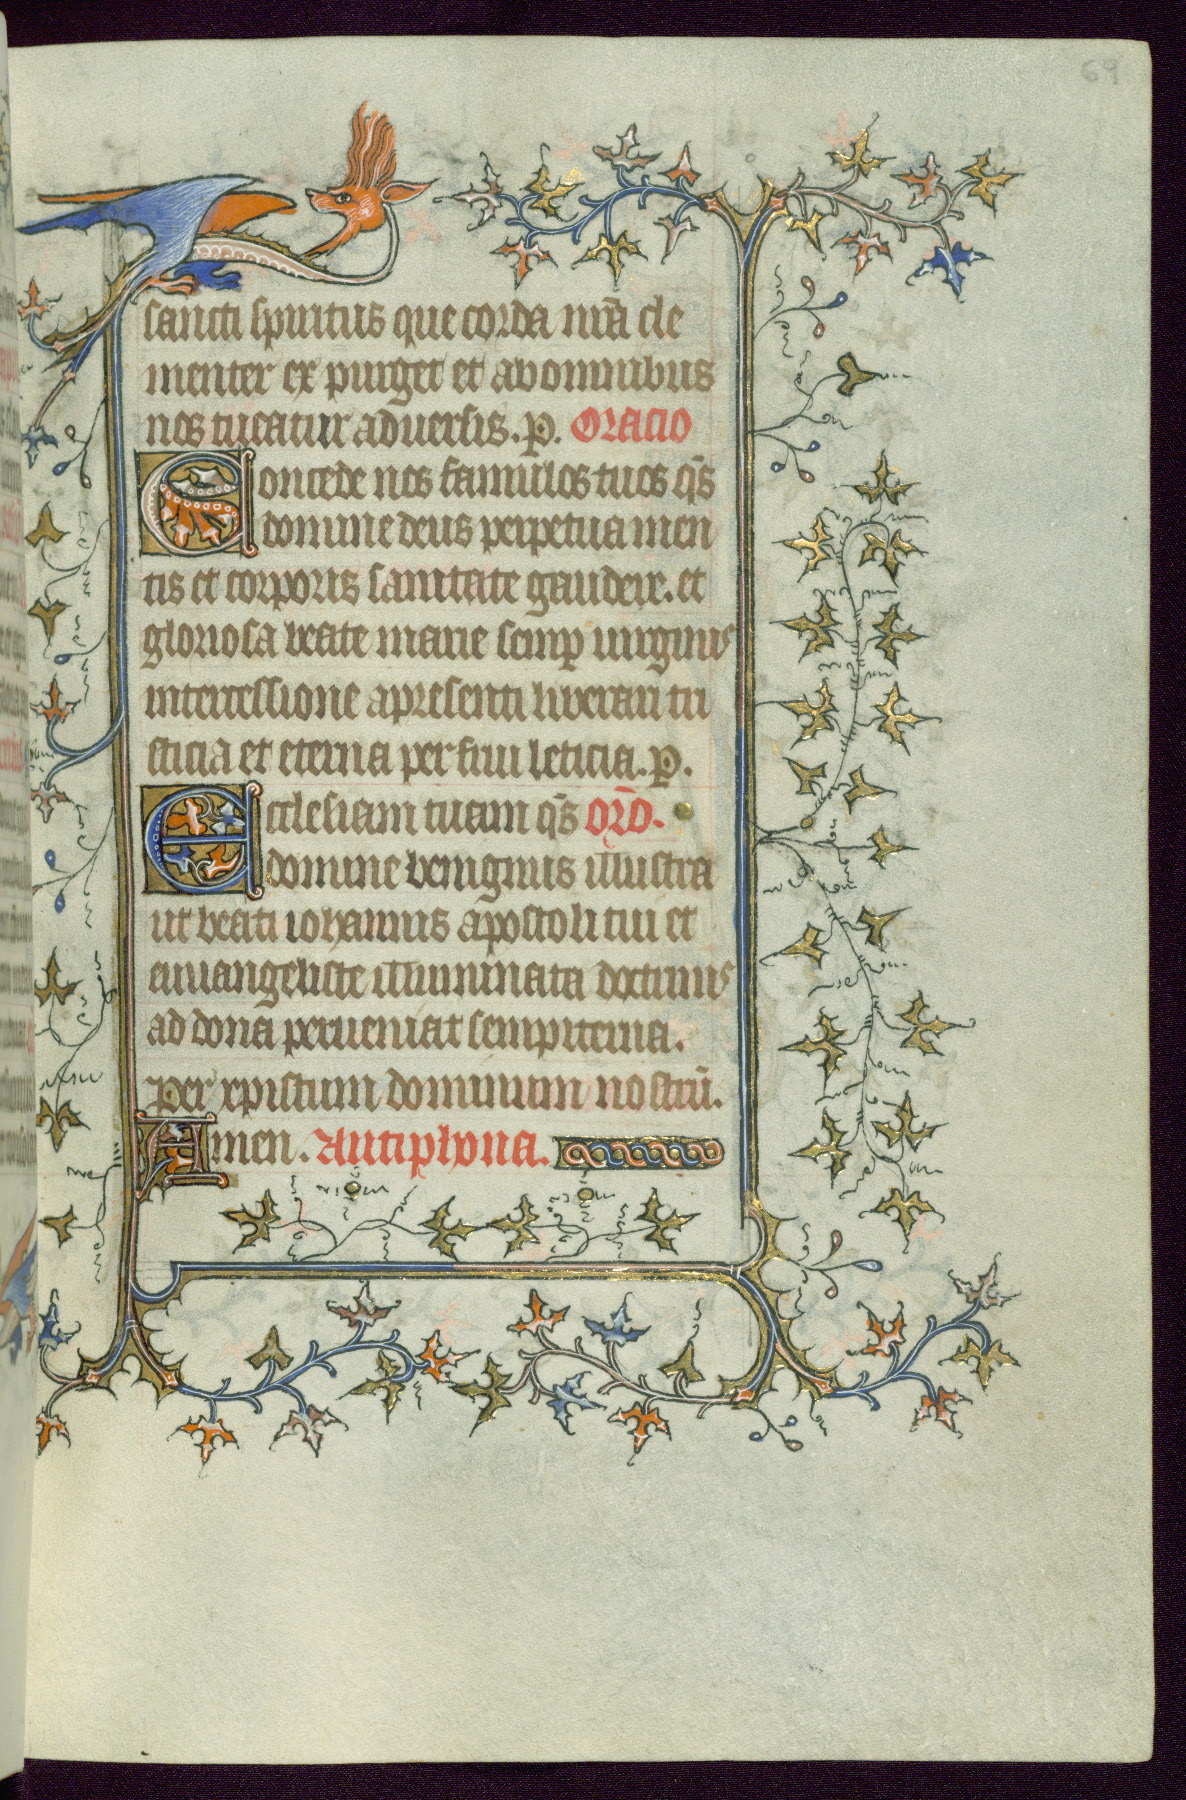 69
sancti spiritus que corda nr̄a cle
menter ex purget et ab omnibus
nos tueatur aduersis. p. Oracio
Concede nos famulos tuos q̄s
domine deus perpetua men
tis et corporis sanitate gaudere. et
gloriosa beate marie semp uirginis
intercessione a presenti liberari tri
sticia et eterna per frui leticia. p.
Ecclesiam tuam q̄s or̄o.
domine benignus illustra
ut beati iohannis apostoli tui et
euuangeliste illuminata doctrinis
ad dona perueniat sempiterna.
Per xpistum dominum nostrū.
Amen. Antiphona.